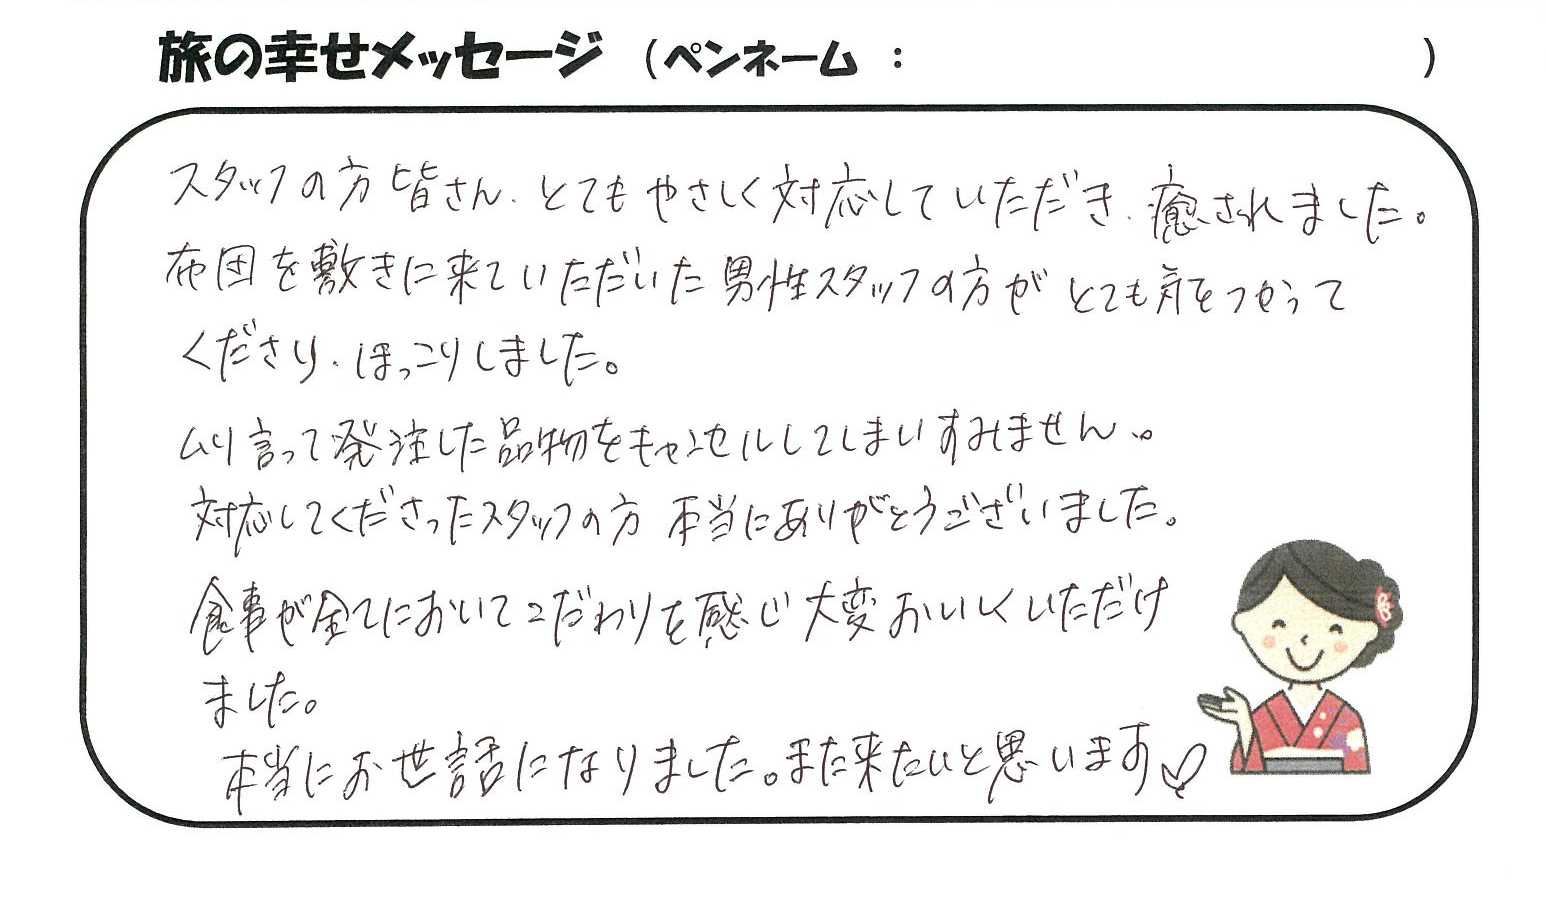 旅の幸せメッセージ (ペンネーム : )
スタッフの方皆さん、とてもやさしく対応していただき、癒されました。
布団を敷きに来ていただいた男性スタッフの方がとても気をつかって
くださり、ほっこりしました。
ムリ言って発注した品物をキャンセルしてしまいすみません。
対応してくださったスタッフの方 本当にありがとうございました。
食事が全てにおいてこだわりを感じ大変おいしくいただけ
ました。
本当にお世話になりました。また来たいと思います♡